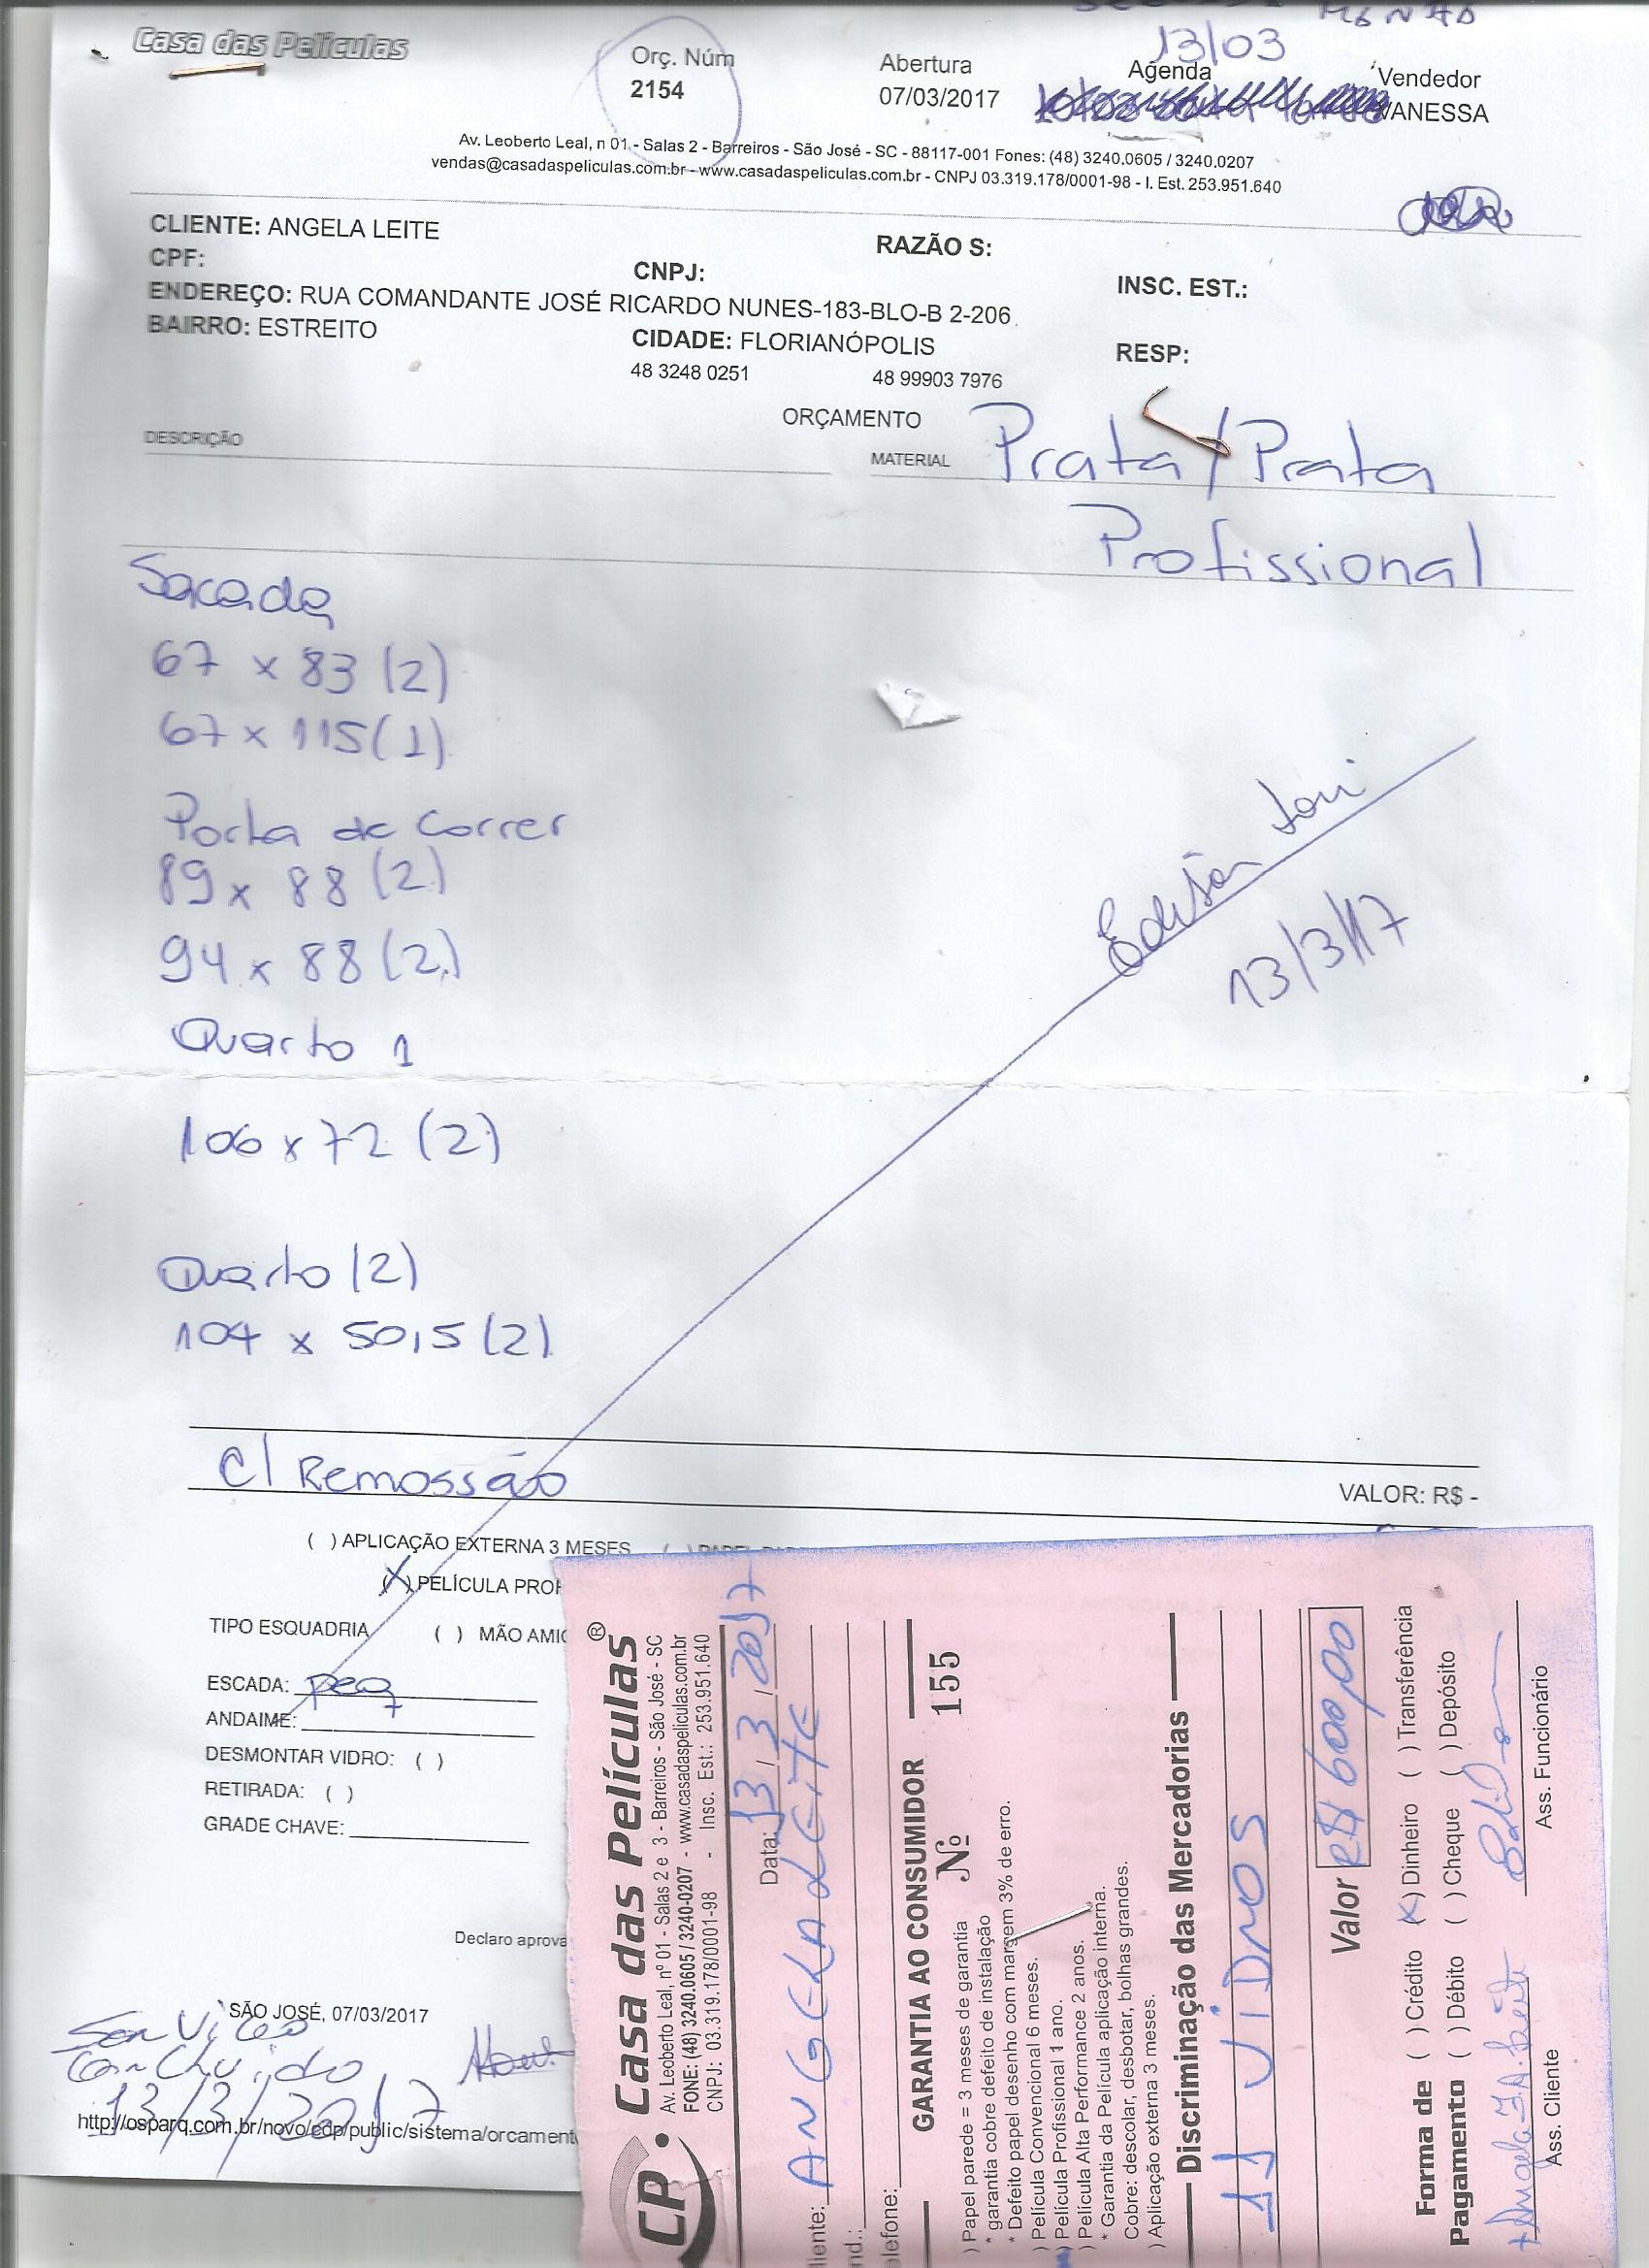 Casa das Películas
Orç. Núm
2154
Abertura
07/03/2017
13/03
Agenda
Vendedor
VANESSA
Av. Leoberto Leal, n 01 - Salas 2 - Barreiros - São José - SC - 88117-001 Fones: (48) 3240.0605 / 3240.0207
vendas@casadaspeliculas.com.br - www.casadaspeliculas.com.br - CNPJ 03.319.178/0001-98 - I. Est. 253.951.640
CLIENTE: ANGELA LEITE
RAZÃO S:
CPF:
CNPJ:
INSC. EST.:
ENDEREÇO: RUA COMANDANTE JOSÉ RICARDO NUNES-183-BLO-B 2-206
BAIRRO: ESTREITO
CIDADE: FLORIANÓPOLIS
RESP:
48 3248 0251
48 99903 7976
ORÇAMENTO
DESCRIÇÃO
MATERIAL Prata/Prata
Profissional
Sacada
67 x 83 (2)
67 x 115 (1)
Porta de Correr
89 x 88 (2)
94 x 88 (2)
Quarto 1
106 x 72 (2)
Quarto (2)
104 x 50,5 (2)
Edison
13/3/17
C/ Remossão
VALOR: R$ -
( ) APLICAÇÃO EXTERNA 3 MESES
(X) PELÍCULA PROF
TIPO ESQUADRIA
( ) MÃO AMIG
ESCADA: peq
ANDAIME:
DESMONTAR VIDRO: ( )
RETIRADA: ( )
GRADE CHAVE:
Declaro aprova
SÃO JOSÉ, 07/03/2017
Serviço
Concluido
13/3/2017
http://osparq.com.br/novo/cdp/public/sistema/orcament
CP. Casa das Películas®
Av. Leoberto Leal, nº 01 - Salas 2 e 3 - Barreiros - São José - SC
FONE: (48) 3240.0605 / 3240-0207 - www.casadaspeliculas.com.br
CNPJ: 03.319.178/0001-98 - Insc. Est.: 253.951.640
Data: 13/3/2017
liente: ANGELA LEITE
nd.:
elefone:
GARANTIA AO CONSUMIDOR
) Papel parede = 3 meses de garantia
* garantia cobre defeito de instalação
* Defeito papel desenho com margem 3% de erro.
) Película Convencional 6 meses.
) Película Profissional 1 ano.
) Película Alta Performance 2 anos.
* Garantia da Película aplicação interna.
Cobre: descolar, desbotar, bolhas grandes.
) Aplicação externa 3 meses.
Nº 155
Discriminação das Mercadorias
11 VIDROS
Valor R$ 600,00
Forma de Pagamento
( ) Crédito (X) Dinheiro ( ) Transferência
( ) Débito ( ) Cheque ( ) Depósito
Ass. Cliente
Ass. Funcionário